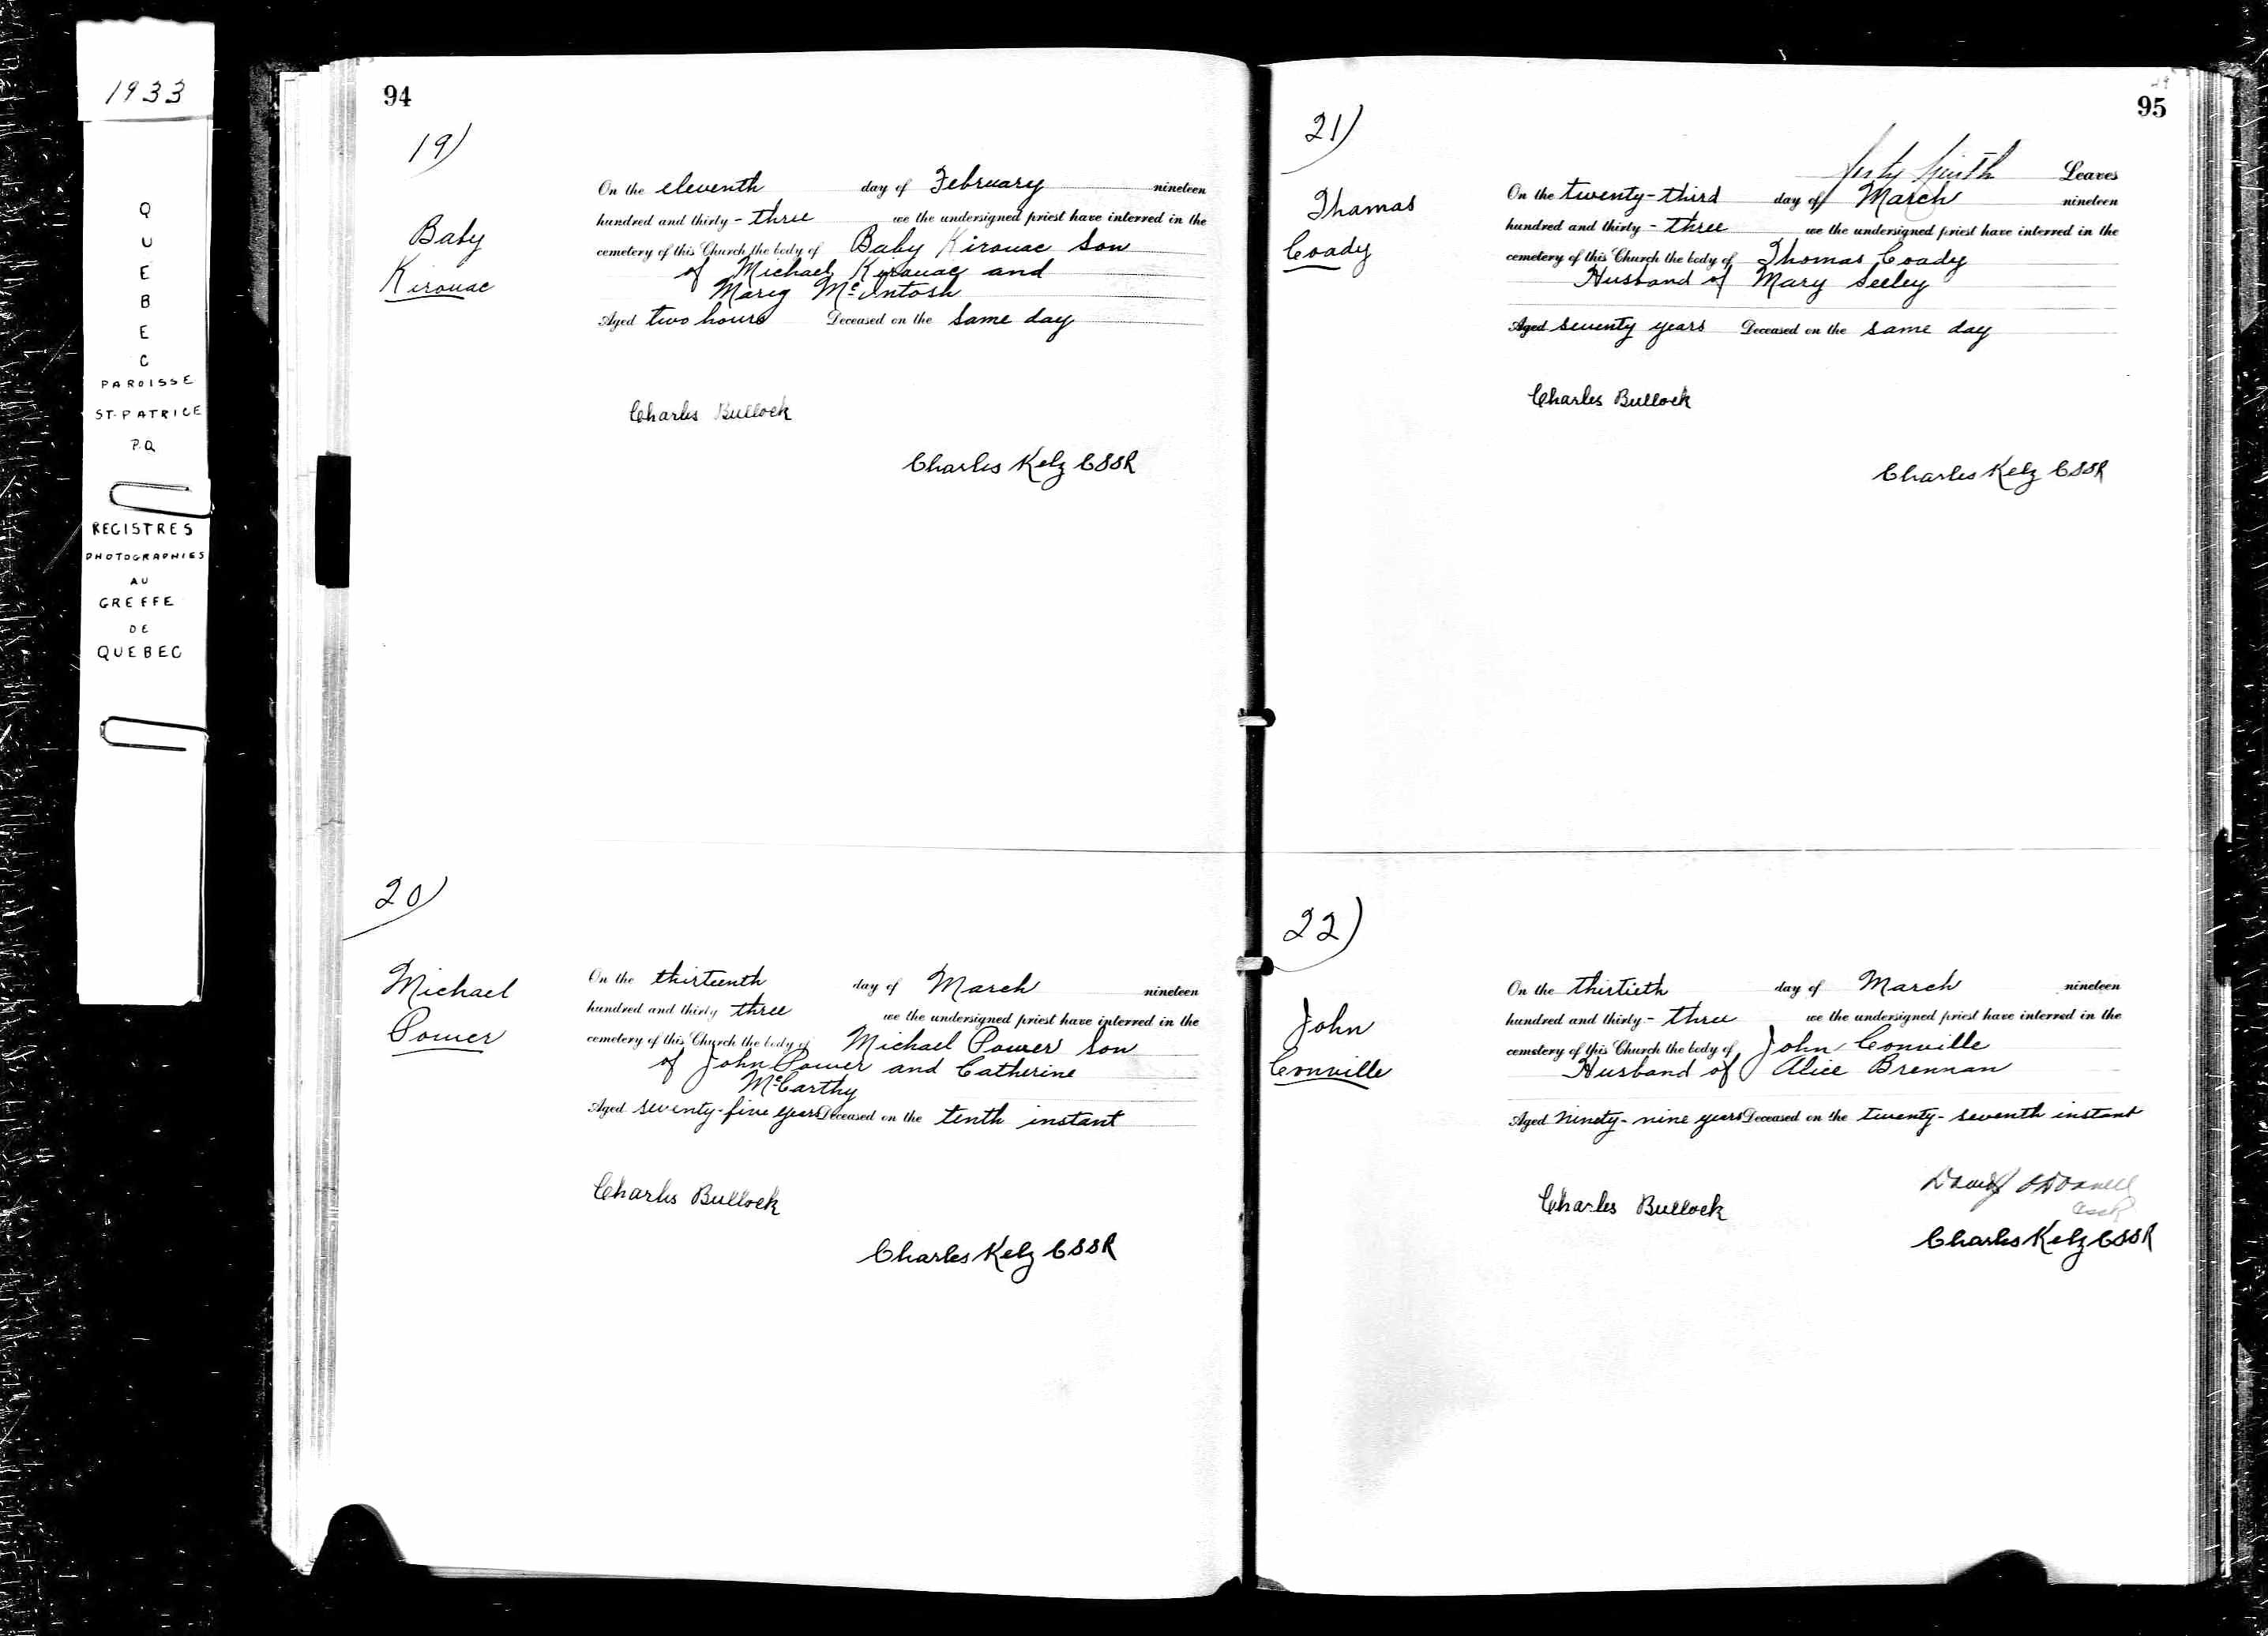 1933
Q
U
E
B
E
C
PAROISSE
ST-PATRICE
P.Q
REGISTRES
PHOTOGRAPHIES
AU
GREFFE
DE
QUEBEC
94
19)
Baby
Kirouac
On the eleventh day of February nineteen
hundred and thirty - three we the undersigned priest have interred in the
cemetery of this Church the body of Baby Kirouac son
of Michael Kirouac and
Mary McIntosh
Aged two hours Deceased on the same day
Charles Bullock
Charles Kelz CSSR
20)
Michael
Power
On the thirteenth day of March nineteen
hundred and thirty three we the undersigned priest have interred in the
cemetery of this Church the body of Michael Power son
of John Power and Catherine
McCarthy
Aged seventy-five years Deceased on the tenth instant
Charles Bullock
Charles Kelz CSSR
95
21)
Leaves
Thomas
Coady
On the twenty-third day of March nineteen
hundred and thirty - three we the undersigned priest have interred in the
cemetery of this Church the body of Thomas Coady
Husband of Mary Seeley
Aged seventy years Deceased on the same day
Charles Bullock
Charles Kelz CSSR
22)
John
Conville
On the thirtieth day of March nineteen
hundred and thirty - three we the undersigned priest have interred in the
cemetery of this Church the body of John Conville
Husband of Alice Brennan
Aged ninety-nine years Deceased on the twenty-seventh instant
David J O'Donnell
CSSR
Charles Bullock
Charles Kelz CSSR